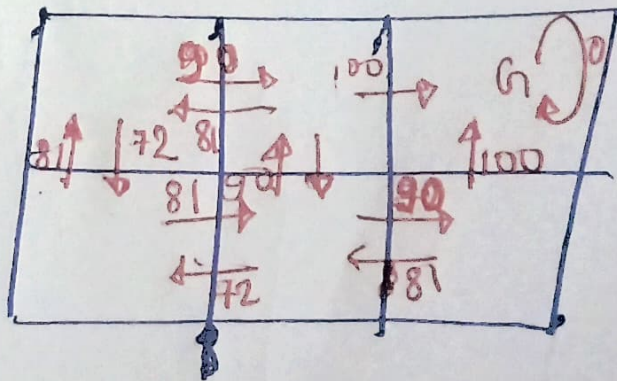 90
100
G 0
81 72 81
90 100
81 90
72 81